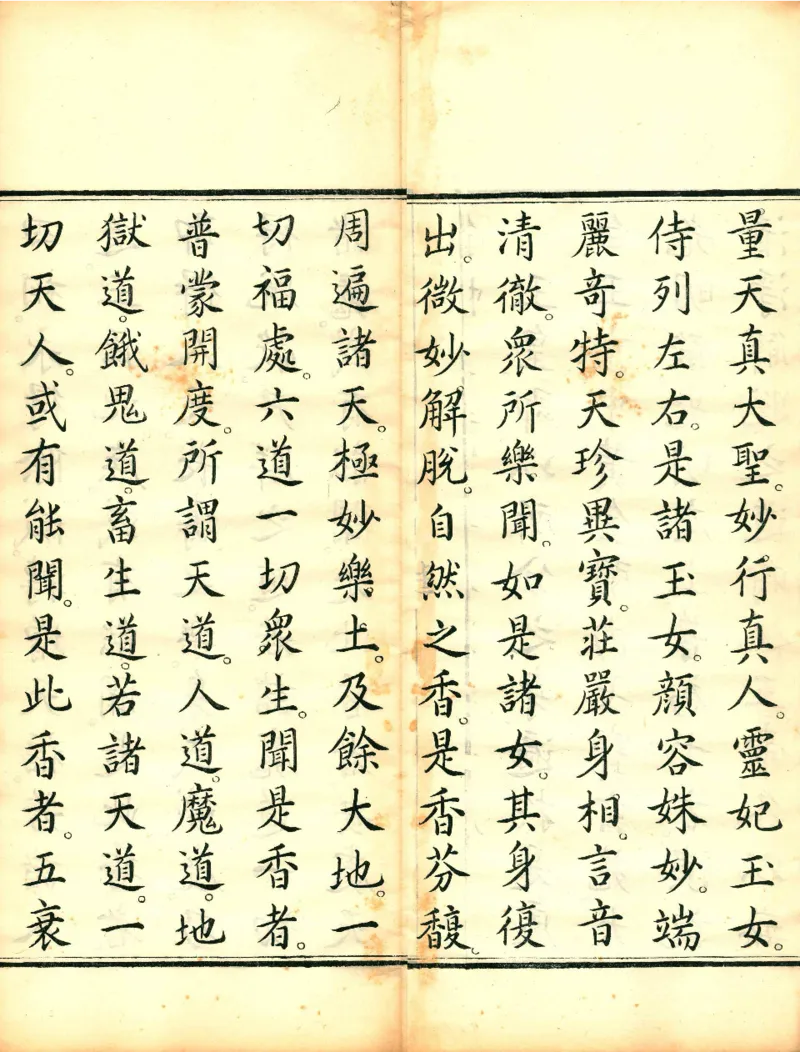 量天真大聖。妙行真人。靈妃玉女。
侍列左右。是諸玉女。顔容姝妙。端
麗奇特。天珍異寶。莊嚴身相。言音
清徹。衆所樂聞。如是諸女。其身復
出。微妙解脫。自然之香。是香芬馥。
周遍諸天。極妙樂土。及餘大地。一
切福處。六道一切衆生。聞是香者。
普蒙開度。所謂天道。人道。魔道。地
獄道。餓鬼道。畜生道。若諸天道。一
切天人。或有能聞。是此香者。五衰